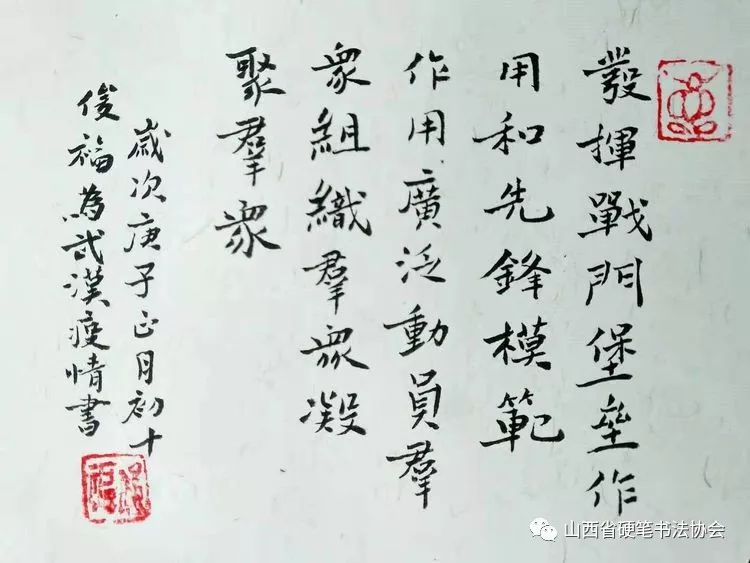 發揮戰鬥堡壘作
用和先鋒模範
作用廣泛動員羣
衆組織羣衆凝
聚羣衆
歲次庚子正月初十
俊福為武漢疫情書
山西省硬笔书法协会